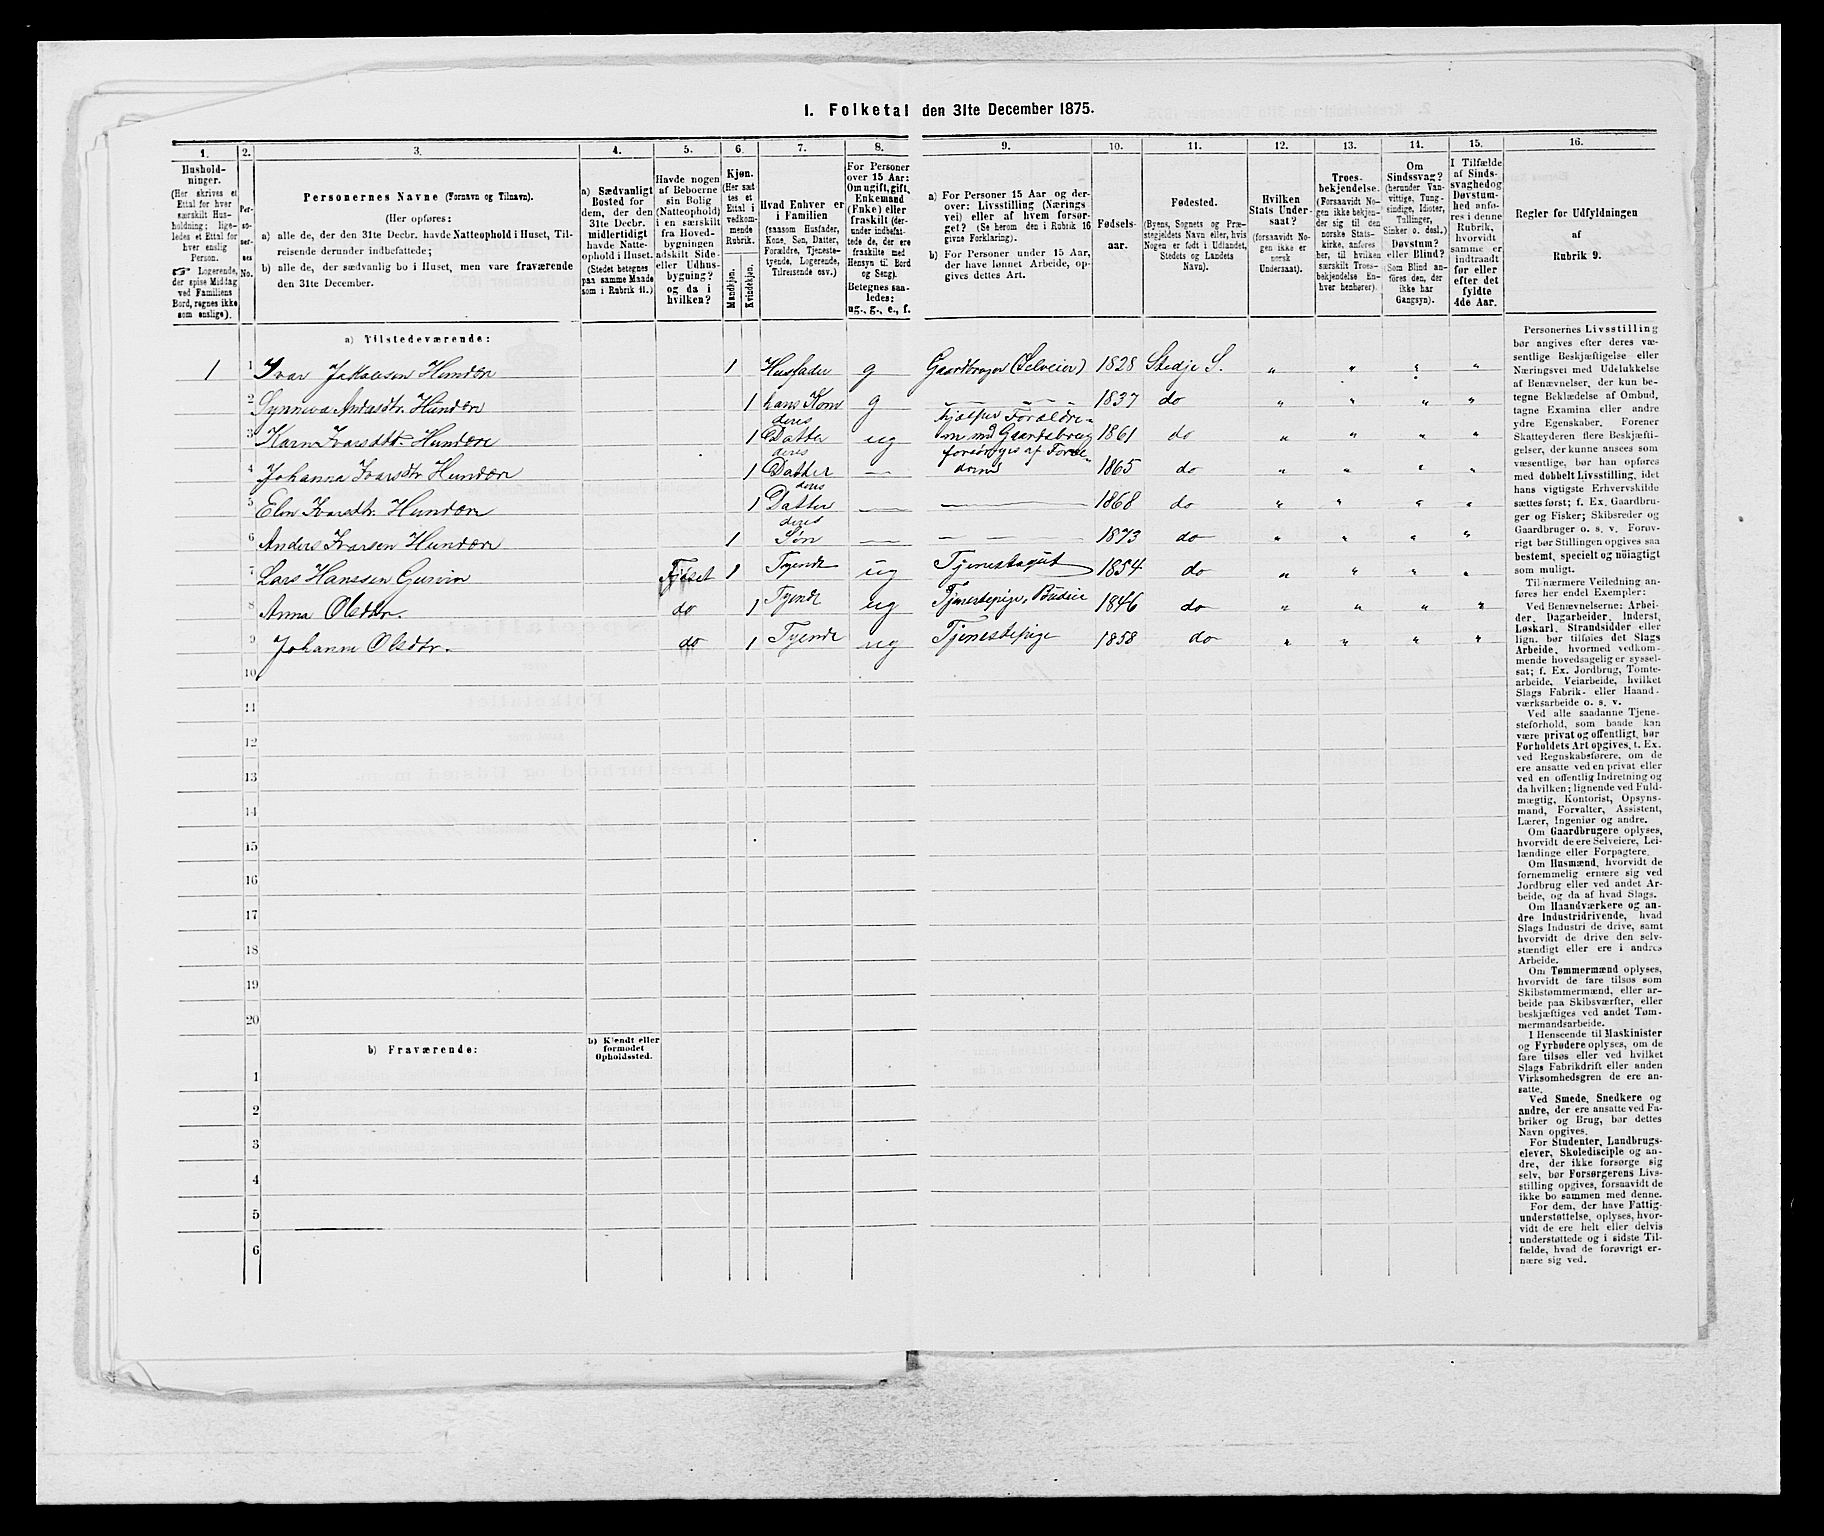 1. Folketal den 31te December 1875.
1. 2. 3. 4. 5. 6. 7. 8. 9. 10. 11. 12. 13. 14. 15. 16.
Hushold-
ninger.
(Her skrives et
Ettal for hver
særskilt Hus-
holdning; lige-
ledes et Ettal for
hver enslig
Person.
☞ Logerende,
der spise Middag
ved Familiens
Bord, regnes ikke
som enslige).
Per-
so-
ner-
nes
No.
Personernes Navne (Fornavn og Tilnavn).
(Her opføres:
a) alle de, der den 31te Decbr. havde Natteophold i Huset, Til-
reisende derunder indbefattede;
b) alle de, der sædvanlig bo i Huset, men vare fraværende
den 31te December.
a) Sædvanligt
Bosted for
dem, der den
31te Decbr.
midlertidigt
havde Natte-
ophold i Huset.
(Stedet betegnes
paa samme Maade
som i Rubrik 11.)
Havde nogen
af Beboerne
sin Bolig
(Natteophold)
i en særskilt
fra Hoved-
bygningen
adskilt Side-
eller Udhus-
bygning?
og da i
hvilken?
Kjøn.
(Her sæt-
tes et
Ettal i
vedkom-
mende
Rubrik.
Mandkjøn.
Kvindekjøn.
Hvad Enhver er
i Familien
(saasom Husfader,
Kone, Søn, Datter,
Forældre, Tjeneste-
tyende, Logerende,
Tilreisende osv.)
For Personer
over 15 Aar:
Om ugift, gift,
Enkemand
(Enke) eller
fraskilt (der-
under indbefat-
tede de, der ere
fraskilte med
Hensyn til Bord
og Seng).
Betegnes saa-
ledes:
ug., g., e., f.
a) For Personer 15 Aar og der-
over: Livsstilling (Nærings-
vei) eller af hvem forsør-
get? (Se herom den i Rubrik 16
givne Forklaring).
b) For Personer under 15 Aar,
der have lønnet Arbeide, op-
gives dettes Art.
Fødsels-
aar.
Fødested.
(Byens, Sognets og Præ-
stegjeldets Navn eller, hvis
Nogen er født i Udlandet,
Stedets og Landets
Navn).
Hvilken
Stats Under-
saat?
(forsaavidt No-
gen ikke er
norsk
Undersaat).
Troes-
bekjendelse.
(Forsaavidt No-
gen ikke bekjen-
der sig til den
norske Stats-
kirke, anføres
her, til hvilken
særskilt Troes-
bekjendelse En-
hver henhører).
Om
Sindssvag?
(herunder Van-
vittige, Tung-
sindige, Idioter,
Tullinger,
Sinker o. desl.)
Døvstum?
eller Blind?
(Som Blind an-
føres den, der
ikke har
Gangsyn).
I Tilfælde
af Sinds-
svaghed og
Døvstum-
hed anfø-
res i denne
Rubrik,
hvorvidt
samme er
indtraadt
før eller
efter det
fyldte
4de Aar.
Regler for Udfyldningen
af
Rubrik 9.
a) Tilstedeværende:
1 1 Ivar Jakobsen Hundere 1 Husfader g Gaardbruger (Selveier) 1828 Stedje S. " " " "
2 Synneva Andersdtr. Hundere 1 hans Kone g — — — — 1837 do " " " "
3 Karn Ivarsdtr. Hundere 1 deres Datter ug hjælper Forældre- ne med Gaardsbrug 1861 do " " " "
4 Johanna Ivarsdtr Hundere 1 deres Datter — forsørges af Foræl- drene 1865 do " " " "
5 Elen Ivarsdtr. Hundere 1 deres Datter — — 1868 do " " " "
6 Anders Ivarsen Hundere 1 deres Søn — — — — 1873 do " " " "
7 Lars Hanssen Gurvin Fjøset 1 Tyende ug Tjenestegut 1854 do " " " "
8 Anna Olsdtr. do 1 Tyende ug Tjenestepige, Budeie 1846 do " " " "
9 Johanne Olsdtr. do 1 Tyende ug Tjenestepige 1858 do " " " "
10
11
12
13
14
15
16
17
18
19
20
b) Fraværende:
b) Kjendt eller
formodet
Opholdssted.
1
2
3
4
5
6
Personernes Livsstilling
bør angives efter deres væ-
sentlige Beskjæftigelse eller
Næringsvei med Udelukkelse
af Benævnelser, der kun be-
tegne Beklædelse af Ombud,
tagne Examina eller andre
ydre Egenskaber. Forener
Skatteyderen flere Beskjæfti-
gelser, der kunne ansees som
væsentlige, bør han opføres
med dobbelt Livsstilling, idet
hans vigtigste Erhvervskilde
sættes først; f. Ex. Gaardbru-
ger og Fisker; Skibsreder og
Gaardbruger o. s. v. Forøv-
rigt bør Stillingen opgives saa
bestemt, specielt og nöiagtigt
som muligt.
Til nærmere Veiledning an-
føres her endel Exempler:
Ved Benævnelserne: Arbei-
der, Dagarbeider, Inderst,
Løskarl, Strandsidder eller
lign. bør tilføies det Slags
Arbeide, hvormed vedkom-
mende hovedsagelig er syssel-
sat; f. Ex. Jordbrug, Tomte-
arbeide, Veiarbeide, hvilket
Slags Fabrik- eller Haand-
værksarbeide o. s. v.
Ved alle saadanne Tjene-
steforhold, som baade kan
være privat og offentligt, bør
Forholdets Art opgives, t. Ex.
ved Regnskabsførere, om de
ere ansatte ved en privat eller
ved en offentlig Indretning og
da hvilken; lignende ved Fuld-
mægtig, Kontorist, Opsyns-
mand, Forvalter, Assistent,
Lærer, Ingeniør og andre.
Om Gaardbrugere oplyses,
hvorvidt de ere Selveiere, Lei-
lændinge eller Forpagtere.
Om Husmænd, hvorvidt de
fornemmelig ernære sig ved
Jordbrug eller ved andet Ar-
beide, og da af hvad Slags.
Om Haandværkere og an-
dre Industridrivende, hvad
Slags Industri de drive, samt
hvorvidt de drive den selv-
stændigt eller ere i andres
Arbeide.
Om Tømmermænd oplyses,
hvorvidt de fare tilsøs som
Skibstømmermænd, eller ar-
beide paa Skibsværfter, eller
beskjæftiges ved andet Tøm-
mermandsarbeide.
I Henseende til Maskinister
og Fyrbødere oplyses, om de
fare tilsøs eller ved hvilket
Slags Fabrikdrift eller anden
Virksomhedsgren de ere an-
satte.
Ved Smede, Snedkere og
andre, der ere ansatte ved Fa-
briker og Brug, bør dettes
Navn opgives.
For Studenter, Landbrugs-
elever, Skoledisciple og an-
dre, der ikke forsørge sig
selv, bør Forsørgerens Livs-
stilling opgives, forsaavidt de
ikke bo sammen med denne.
For dem, der have Fattig-
understøttelse, oplyses, hvor-
vidt de ere helt eller delvis
understøttede og i sidste Til-
fælde, hvad de forøvrigt er-
nære sig ved.